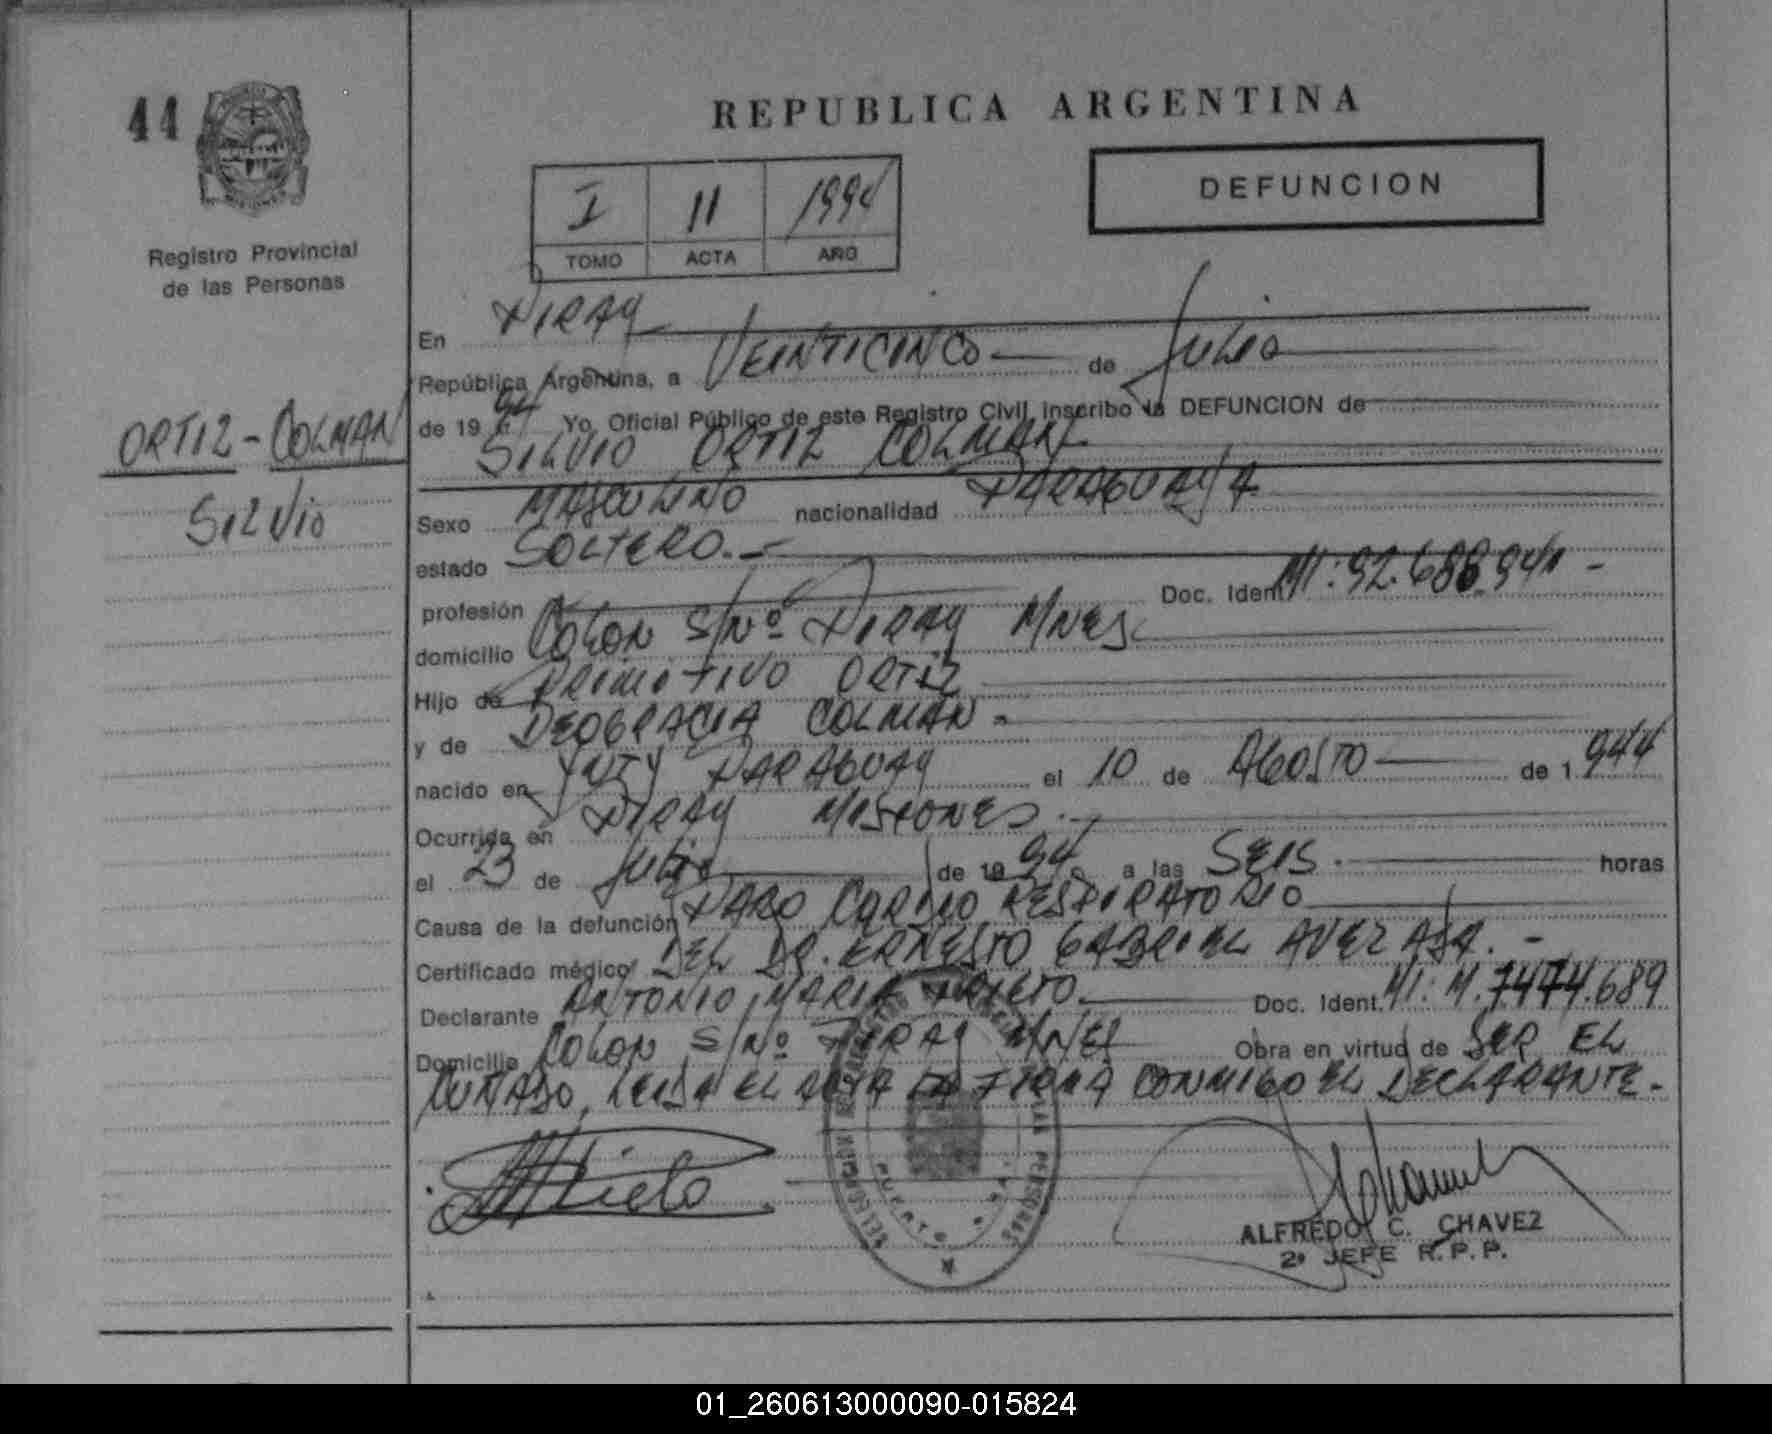 44
REPUBLICA ARGENTINA
I 11 1994
TOMO ACTA AÑO
DEFUNCION
Registro Provincial
de las Personas
ORTIZ - COLMAN
SILVIO
En PIRAY
República Argentina, a VEINTICINCO de JULIO
de 1994 Yo, Oficial Público de este Registro Civil, inscribo la DEFUNCION de
SILVIO ORTIZ COLMAN
Sexo MASCULINO nacionalidad PARAGUAYA
estado SOLTERO.-
profesión Doc. Ident. MI: 92.688.941 -
domicilio COLON S/Nº PIRAY MNES.
Hijo de PRIMITIVO ORTIZ
y de DEOGRACIA COLMAN -
nacido en YUTY PARAGUAY el 10 de AGOSTO de 1944
Ocurrida en PIRAY MISIONES.
el 23 de Julio de 1994 a las SEIS. horas
Causa de la defunción PARO CARDIO RESPIRATORIO
Certificado médico DEL DR. ERNESTO GABRIEL -
Declarante ANTONIO MARIA PRIETO Doc. Ident. MI: M.7474.689
Domicilio COLON S/Nº PIRAY MNES Obra en virtud de SER EL
CUÑADO, LEIDA EL ACTA LA FIRMA CONMIGO EL DECLARANTE -
PUERTO
ALFREDO C. CHAVEZ
2º JEFE R.P.P.
01_260613000090-015824